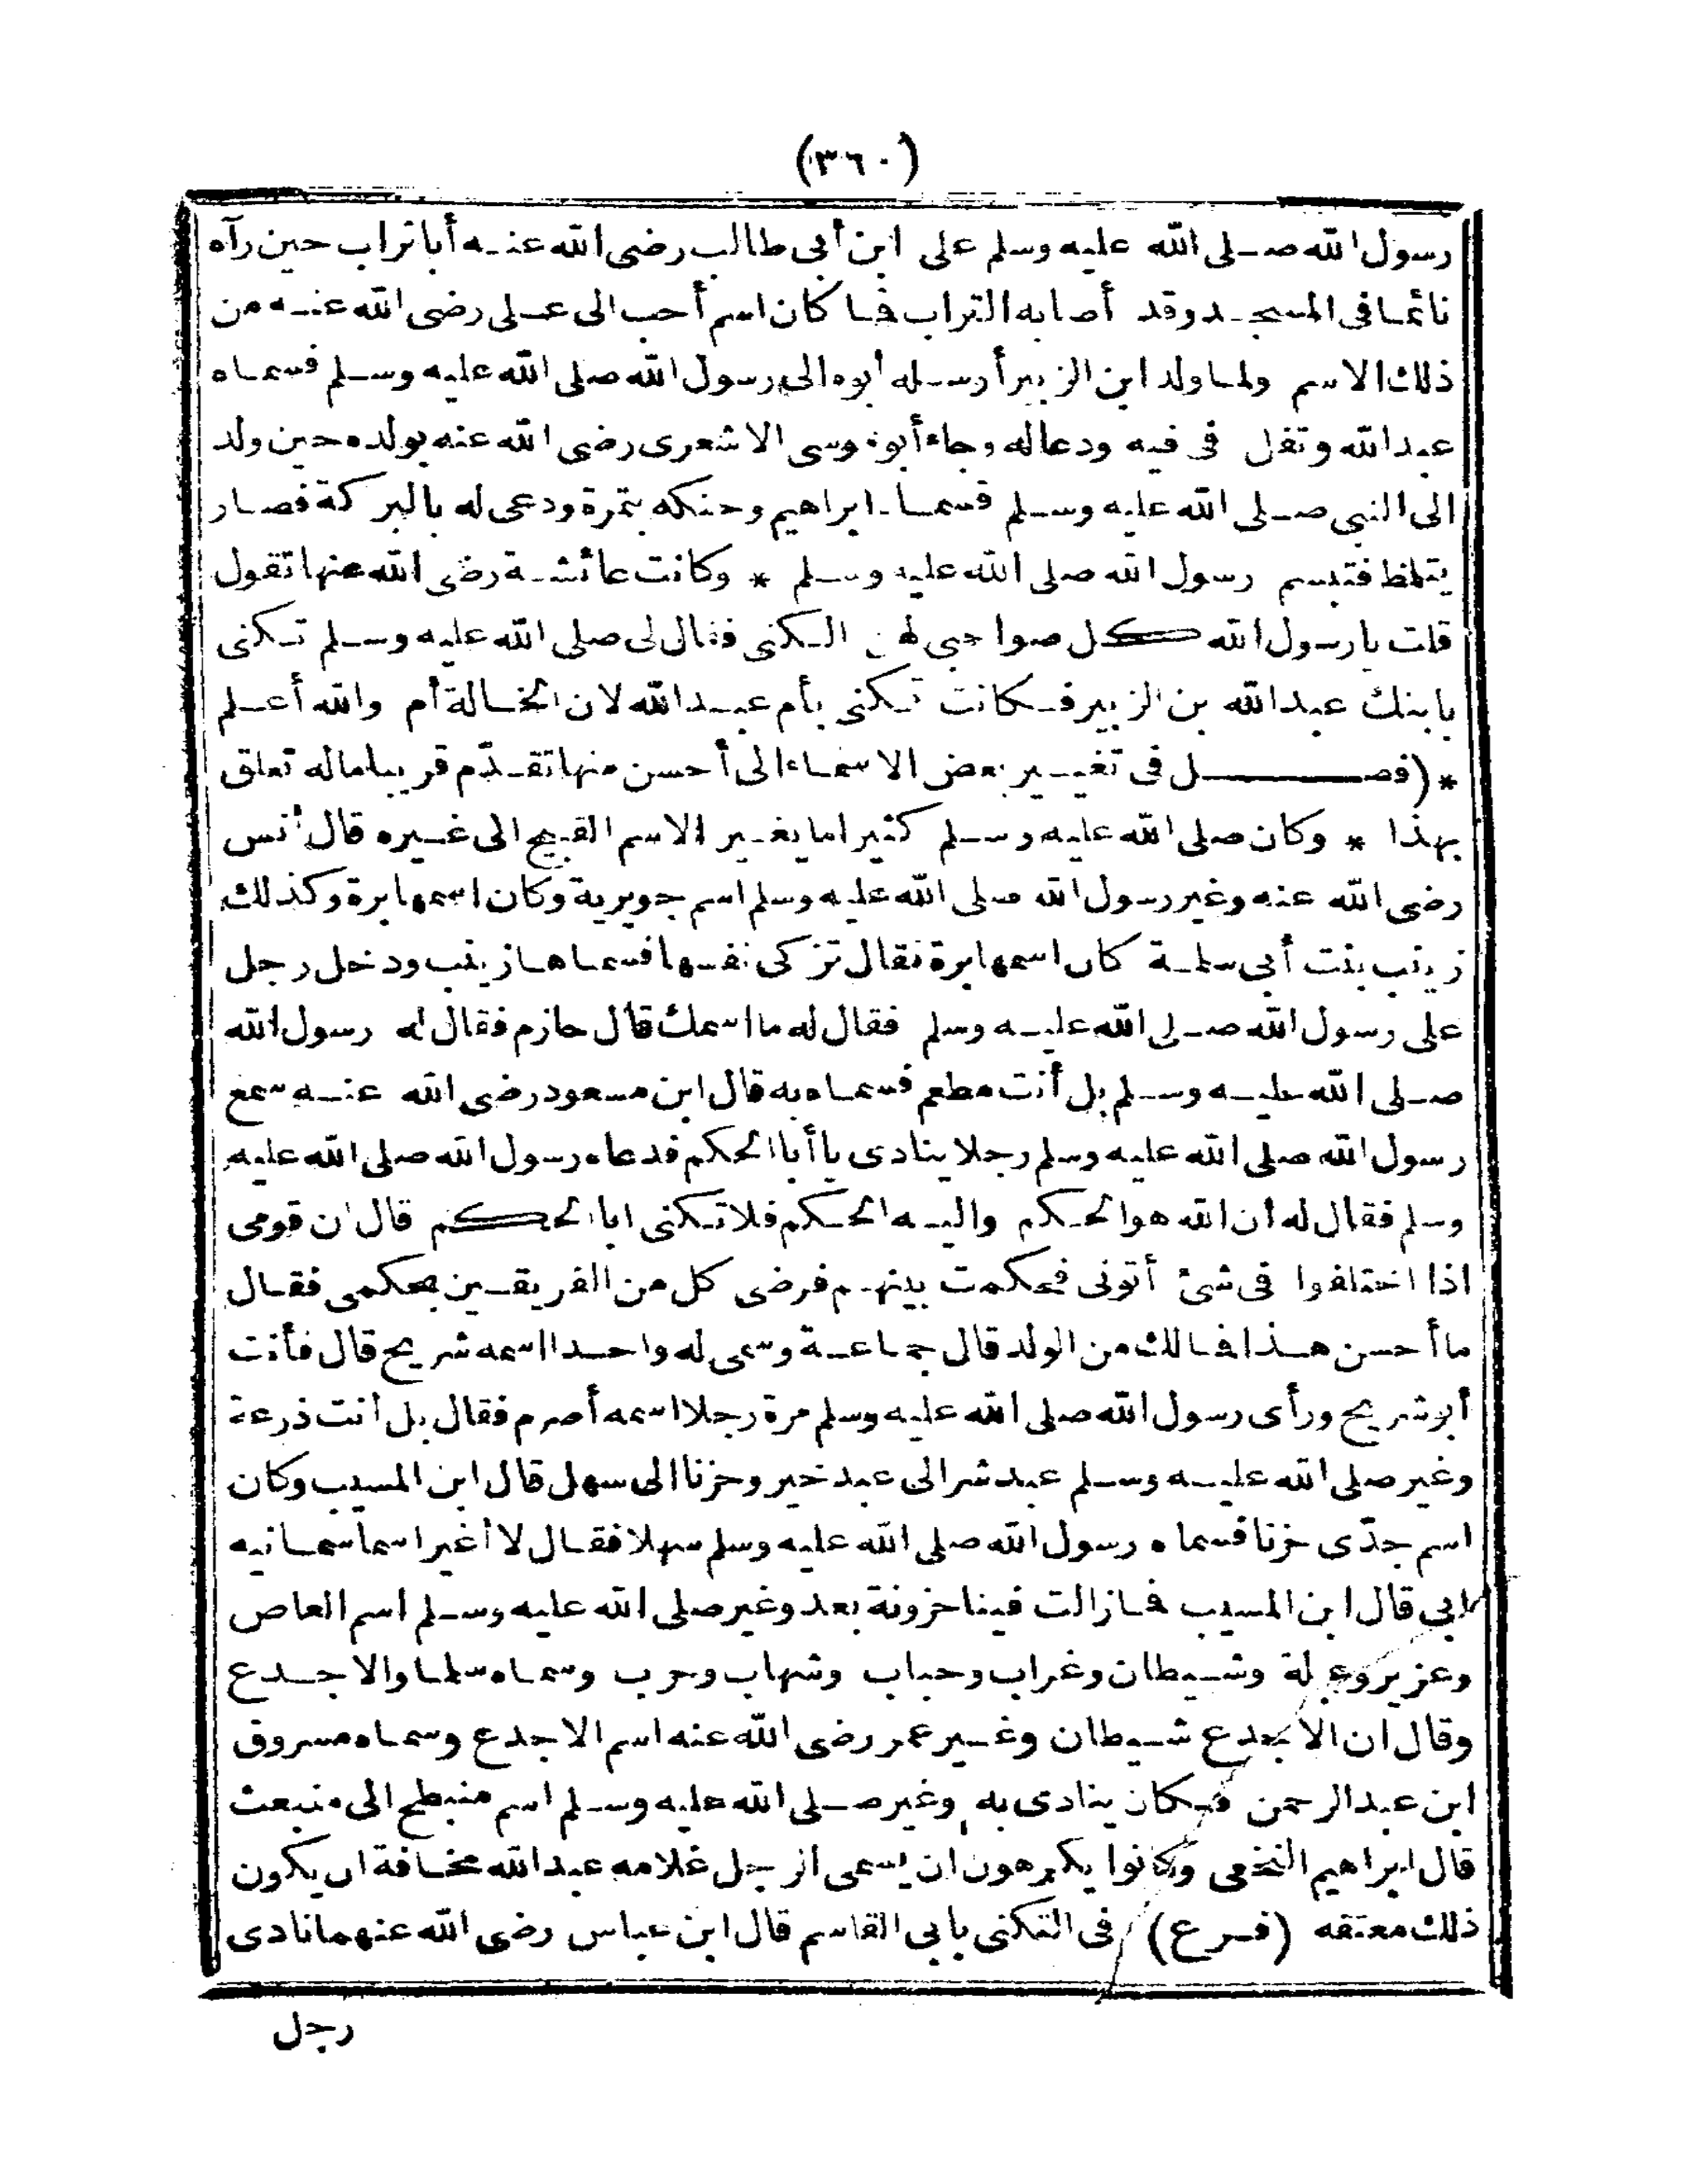 (٣٦٠)
رسول الله صلى الله عليه وسلم على ابن أبى طالب رضى الله عنه أبا تراب حين رآه
نائما فى المسجد وقد أصابه التراب فما كان اسم أحب الى على رضى الله عنه من
ذلك الاسم ولما ولد ابن الزبير أرسله أبوه الى رسول الله صلى الله عليه وسلم فسماه
عبد الله وتفل فى فيه ودعاله وجاء أبو موسى الاشعرى رضى الله عنه بولده حين ولد
الى النبى صلى الله عليه وسلم فسماه ابراهيم وحنكه بتمرة ودعى له بالبركة فصار
يتلمظ فتبسم رسول الله صلى الله عليه وسلم * وكانت عائشة رضى الله عنها تقول
قلت يا رسول الله كل صواحبى لهن الكنى فقال لى صلى الله عليه وسلم تكنى
بابنك عبد الله بن الزبير فكانت تكنى بأم عبد الله لان الخالة أم والله أعلم
*(فصل فى تغيير بعض الاسماء الى أحسن منها تقدّم قريبا ماله تعلق
بهذا * وكان صلى الله عليه وسلم كثيرا ما يغير الاسم القبيح الى غيره قال أنس
رضى الله عنه وغير رسول الله صلى الله عليه وسلم اسم جويرية وكان اسمها برة وكذلك
زينب بنت أبى سلمة كان اسمها برة فقال تزكى نفسها فسماها زينب ودخل رجل
على رسول الله صلى الله عليه وسلم فقال له ما اسمك قال حازم فقال له رسول الله
صلى الله عليه وسلم بل أنت مطعم فسماه به قال ابن مسعود رضى الله عنه سمع
رسول الله صلى الله عليه وسلم رجلا ينادى يا أبا الحكم فدعاه رسول الله صلى الله عليه
وسلم فقال له ان الله هو الحكم واليه الحكم فلا تكنى ابا الحكم قال ان قومى
اذا اختلفوا فى شئ أتونى فحكمت بينهم فرضى كل من الفريقين بحكمى فقال
ما أحسن هذا فما لك من الولد قال جماعة وسمى له واحدا اسمه شريح قال فأنت
أبو شريح ورأى رسول الله صلى الله عليه وسلم مرة رجلا اسمه أصرم فقال بل انت ذرعة
وغير صلى الله عليه وسلم عبد شر الى عبد خير وحزنا الى سهل قال ابن المسيب وكان
اسم جدّى حزنا فسماه رسول الله صلى الله عليه وسلم سهلا فقال لا أغير اسما سمانيه
ابى قال ابن المسيب فما زالت فينا حزونة بعد وغير صلى الله عليه وسلم اسم العاص
وعزيز وعتلة وشيطان وغراب وحباب وشهاب وحرب وسماه سلما والاجدع
وقال ان الاجدع شيطان وغير عمر رضى الله عنه اسم الاجدع وسماه مسروق
ابن عبد الرحمن فكان ينادى به وغير صلى الله عليه وسلم اسم منبطح الى منبعث
قال ابراهيم النخعى وكانوا يكرهون ان يسمى الرجل غلامه عبد الله مخافة ان يكون
ذلك معتقه (فرع) فى التكنى بابى القاسم قال ابن عباس رضى الله عنهما نادى
رجل